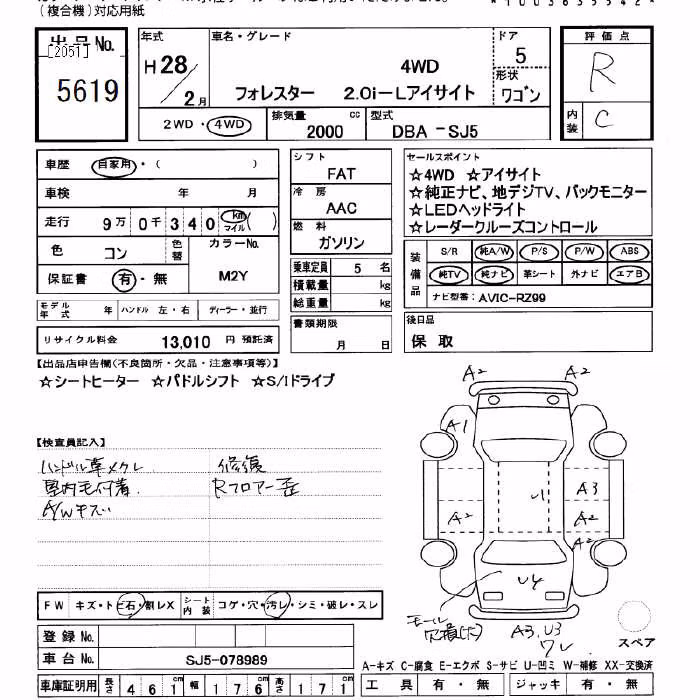 (複合機)対応用紙
*1003635542*
出品No.
[2051]
5619
年式
H28/2月
車名・グレード
4WD
フォレスター 2.0i-Lアイサイト
ドア
5
形状
ワゴン
評価点
R
内装
C
2WD・4WD
排気量
2000 cc
型式
DBA -SJ5
車歴 自家用・( )
車検 年 月
走行 9万0千340 km マイル ( )
色 コン 色替
カラーNo.
M2Y
保証書 有・無
モデル年式 年 ハンドル 左・右 ディーラー・並行
リサイクル料金 13,010 円 預託済
シフト
FAT
冷房
AAC
燃料
ガソリン
乗車定員 5 名
積載量 kg
総重量 kg
書類期限
月 日
セールスポイント
☆4WD ☆アイサイト
☆純正ナビ、地デジTV、バックモニター
☆LEDヘッドライト
☆レーダークルーズコントロール
装備品
S/R 純A/W P/S P/W ABS
純TV 純ナビ 革シート 外ナビ エアB
ナビ型番: AVIC-RZ99
後日品
保 取
【出品店申告欄(不良箇所・欠品・注意事項等)】
☆シートヒーター ☆パドルシフト ☆S/Iドライブ
【検査員記入】
ハンドル革メクレ
室内毛付着
A/Wキズ
修復
Rフロアー歪
A2 A2
A1
U1
A3
A2 A2
U4
モール
A3,U3
ワレ
スペア
FW キズ・トビ石・割レX
シート内装 コゲ・穴・汚レ・シミ・破レ・スレ
登録No.
車台No. SJ5-078989
車庫証明用 長さ 461cm 幅 176cm 高さ 171cm
A-キズ C-腐食 E-エクボ S-サビ U-凹ミ W-補修 XX-交換済
工具 有・無 ジャッキ 有・無